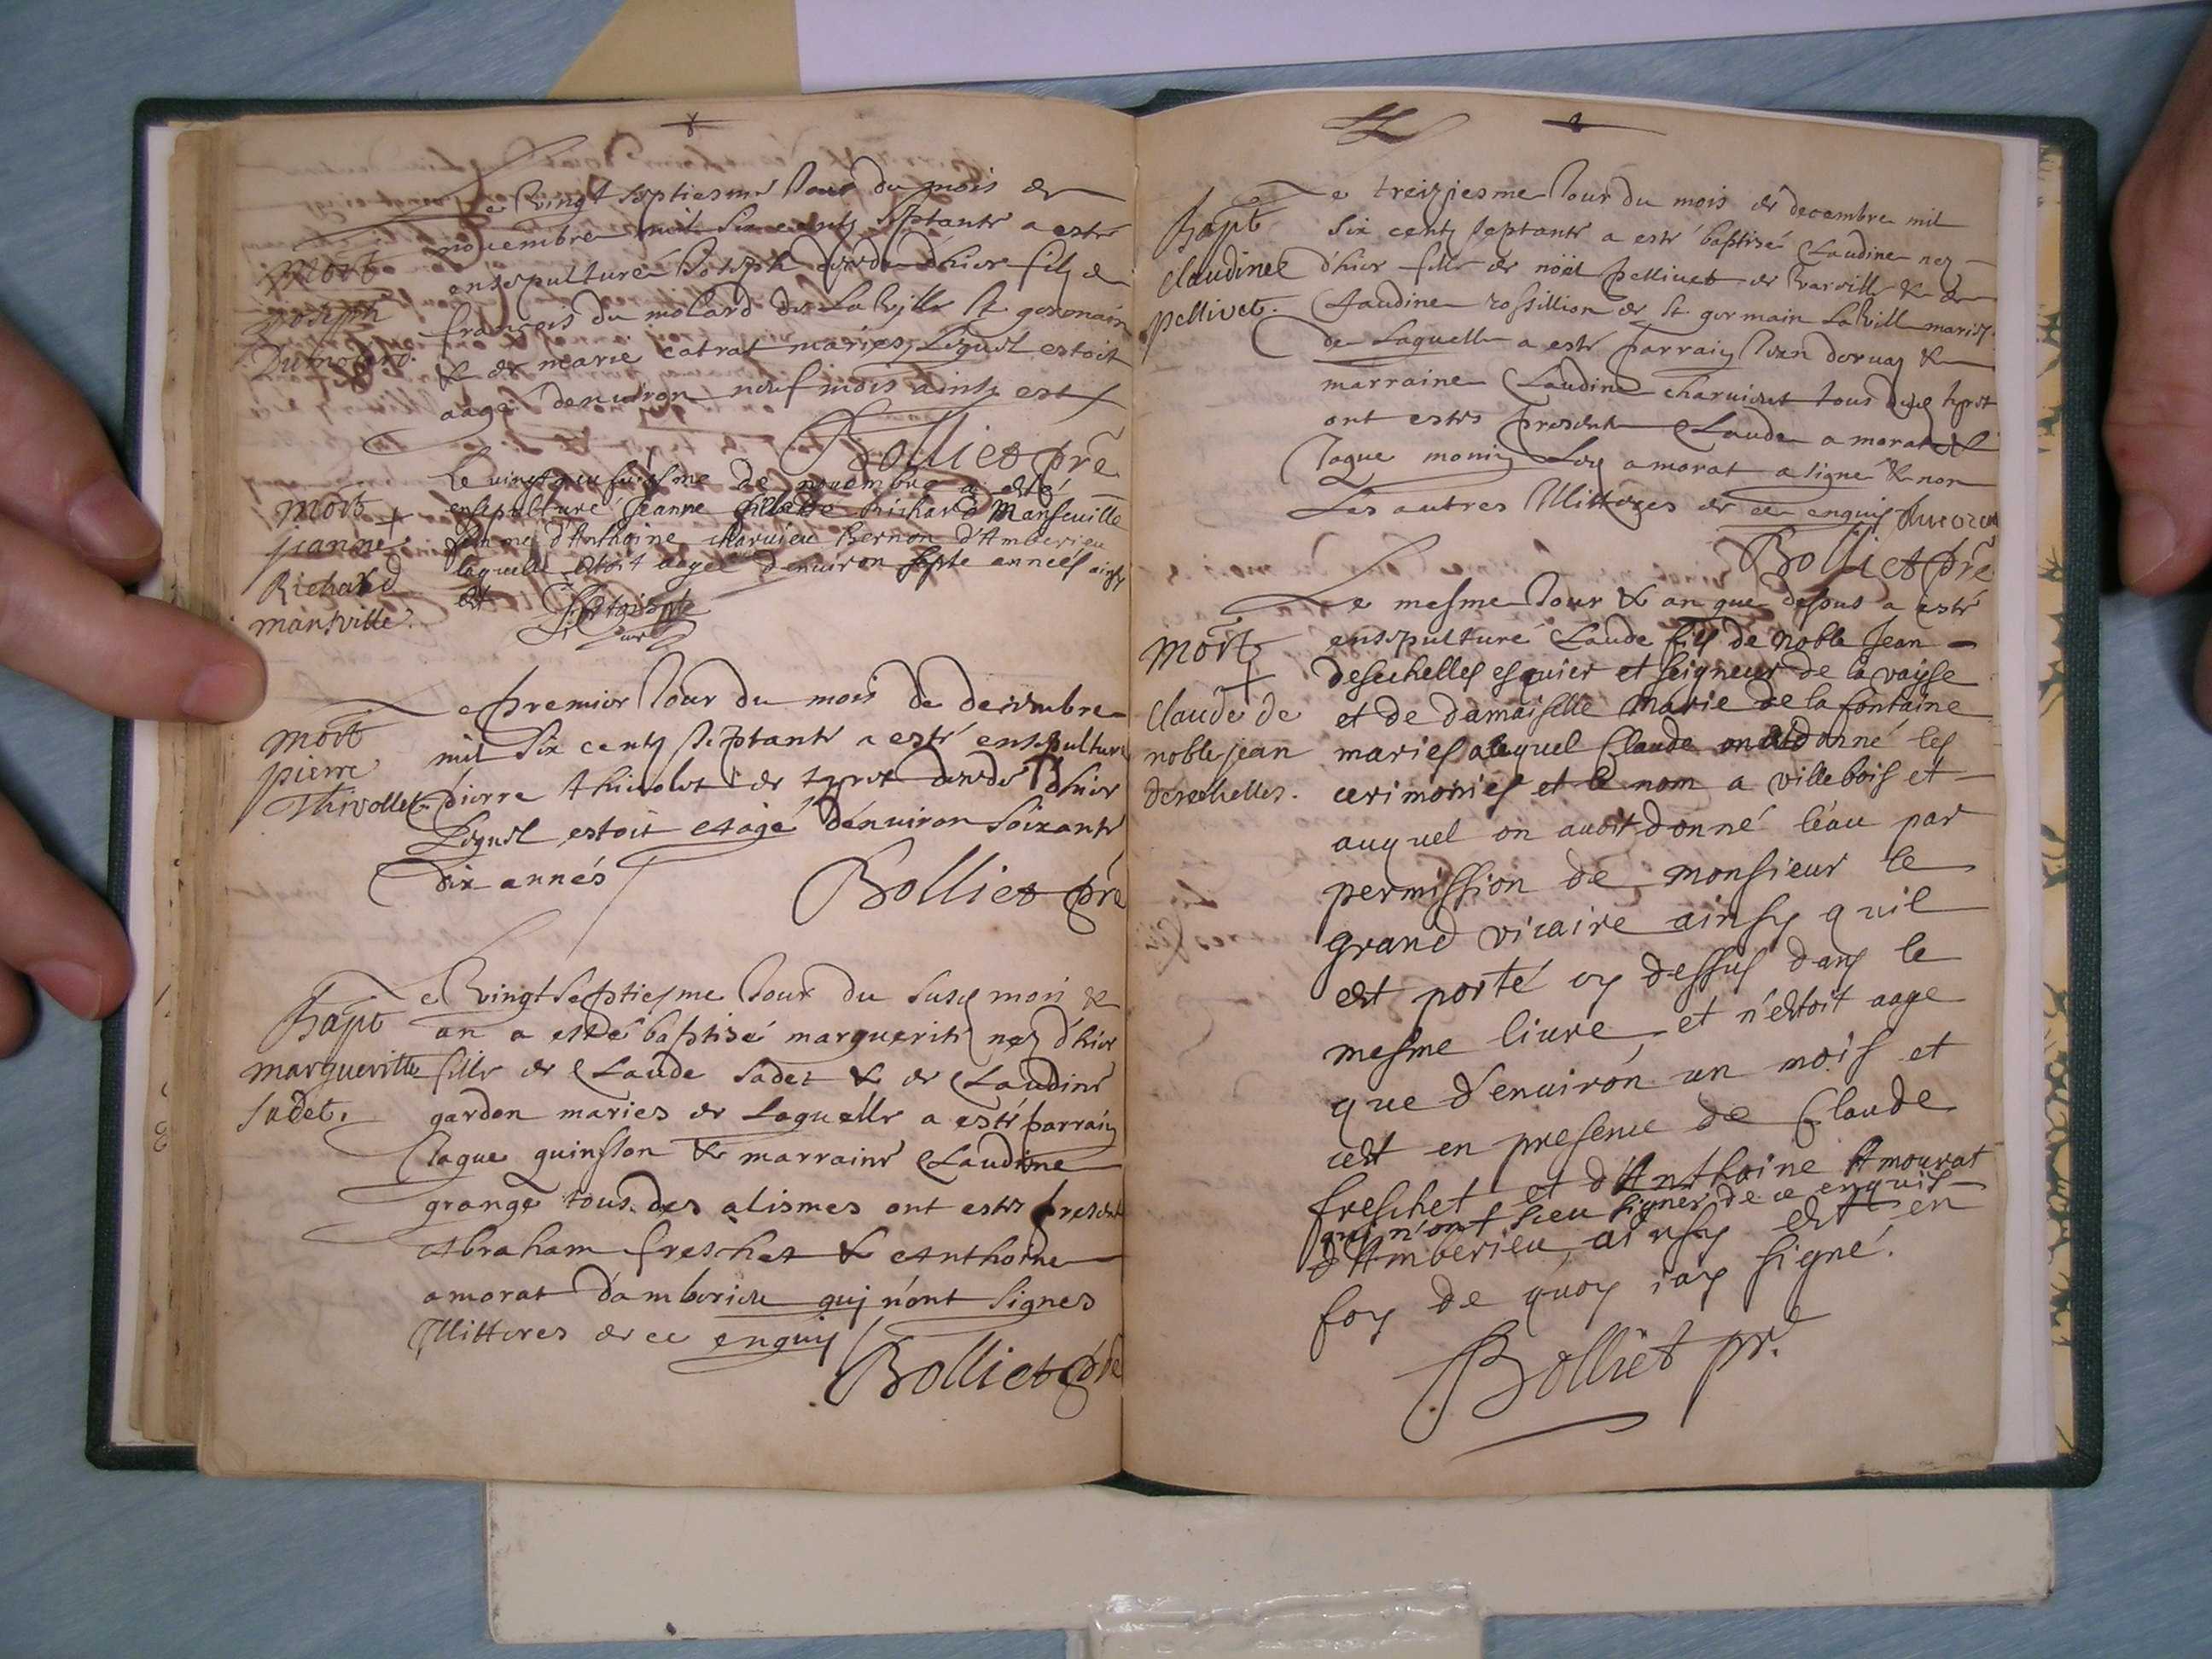 Le vingt septiesme Jour du mois de
novembre mil six centz septante a esté
ensepulturé Joseph decedé d'hier filz de
françois du molard de La ville St germain
& de marie catrat mariés, Lequel estoit
aagé denuiron neuf mois ainsy est
Bolliet pre
mort
Joseph
Dumolard.
Le vingt neufuiesme de novembre a esté
ensepulturé Jeanne fille de Richard Manseuille
femme d'Anthoine Charuieu Bernon d'Amberieu
laquelle estoit aagée d'enuiron septe années ainsy
est
mort
jeanne
Richard
mansville.
Le premier Jour du mois de decembre
mil six centz septante a esté ensepulturé
pierre thiuolet de tyret decedé d'hier
Lequel estoit aagé d'enuiron soixante
dix annés
Bolliet pre
mort
pierre
Thivollet
Le vingt septiesme Jour du susd mois &
an a esté baptisé marguerite nez d'hier
fille de Claude sadet & de Claudine
gardon mariés de Laquelle a esté parrain
Jaque guinsson & marraine Claudine
grange tous des alismes ont estes present
Abraham freschet & Anthoine
amorat d'amberieu qui n'ont signes
Illitteres de ce enquis
Bolliet pre
Bapt
marguerite
sadet.
Le treiziesme Jour du mois de decembre mil
six centz septante a esté baptisé Claudine nez
d'hier fille de noël pellivet de Vareille & de
Claudine rossillion de St germain La ville mariez
de Laquelle a esté parrain Jean deruaz &
marraine Claudine charuiet tous dud tyret
ont estes present Claude amorat &
Jaque monin Led amorat a signé & non
Les autres Illitteres de ce enquis
Bolliet pre
Bapt
claudine
pellivet.
Le mesme Jour & an que dessus a esté
ensepulturé Claude fils de noble Jean
desechelles esquier et seigneur de la vaysse
et de damaiselle Marie de la fontaine
mariés alequel Claude on a donné les
cerimonies et le nom a villebois et
auquel on auoit donné l'eau par
permission de monsieur le
grand vicaire ainsy quil
est porté cy dessus dans le
mesme liure et n'estoit aage
que d'enuiron un mois et
cest en presence de Claude
freschet et d'Anthoine Amourat
qui n'ont sceu signer de ce enquis
d'Amberieu ainsy est en
foy de quoy iay signé.
Bolliet pre
mort
claude de
noble jean
desechelles.